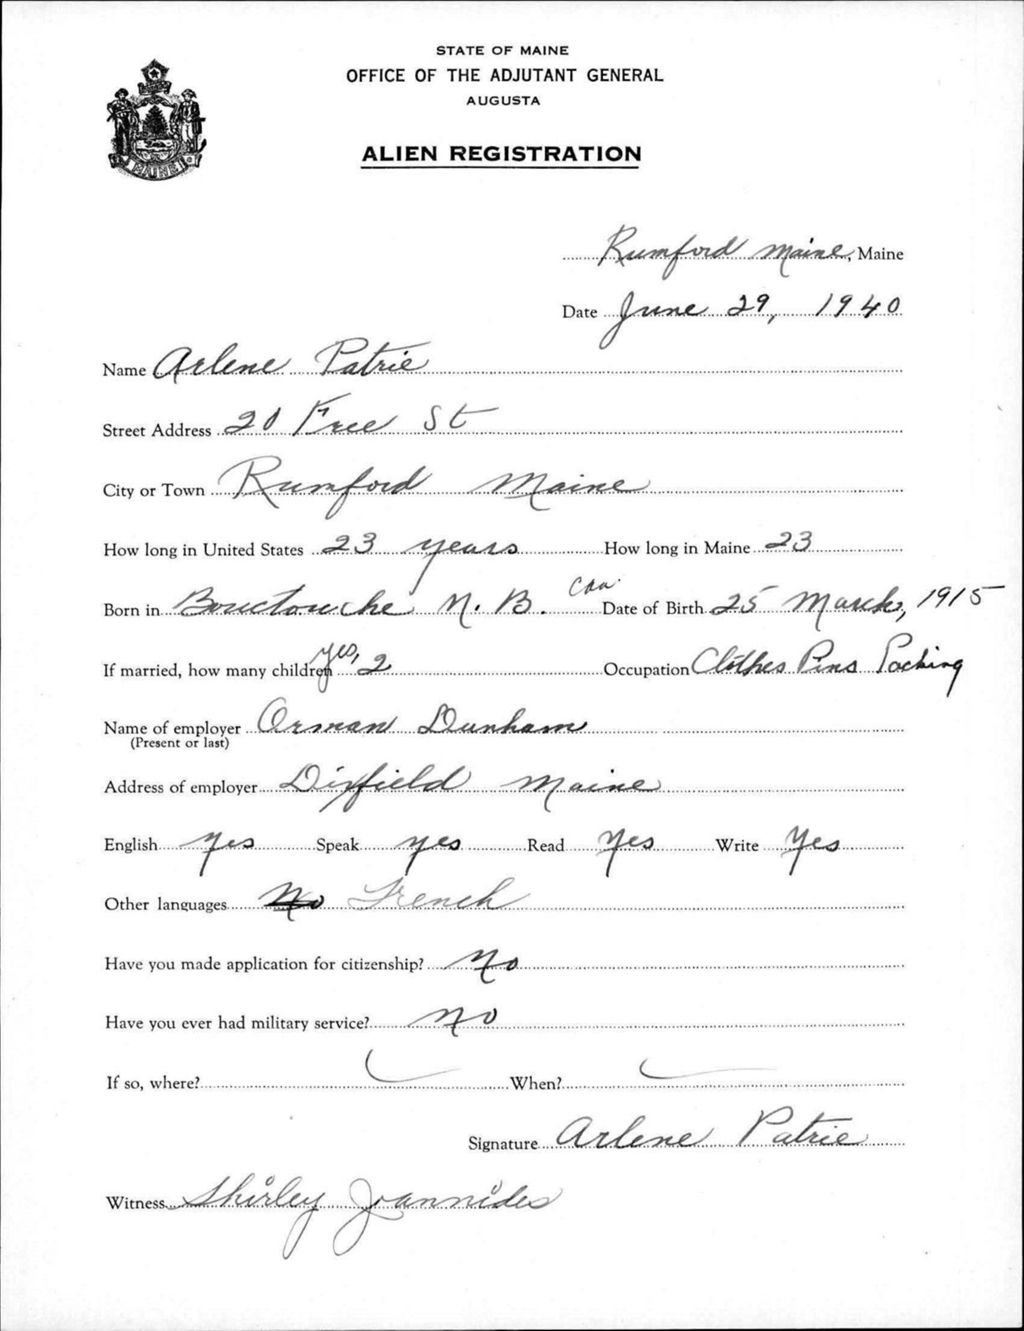 STATE OF MAINE
OFFICE OF THE ADJUTANT GENERAL
AUGUSTA
ALIEN REGISTRATION
MAINE
Rumford Maine, Maine
Date June 29, 1940
Name Arlene Patrie
Street Address 20 Free St
City or Town Rumford Maine
How long in United States 23 years How long in Maine 23
Born in Bouctouche N. B. Can. Date of Birth 25 March, 1915
If married, how many children yes, 2 Occupation Clothes Pins Packing
Name of employer Orman Dunham
(Present or last)
Address of employer Dixfield Maine
English Yes Speak yes Read Yes Write Yes
Other languages No French
Have you made application for citizenship? No
Have you ever had military service? No
If so, where? When?
Signature Arlene Patrie
Witness Shirley Joannides